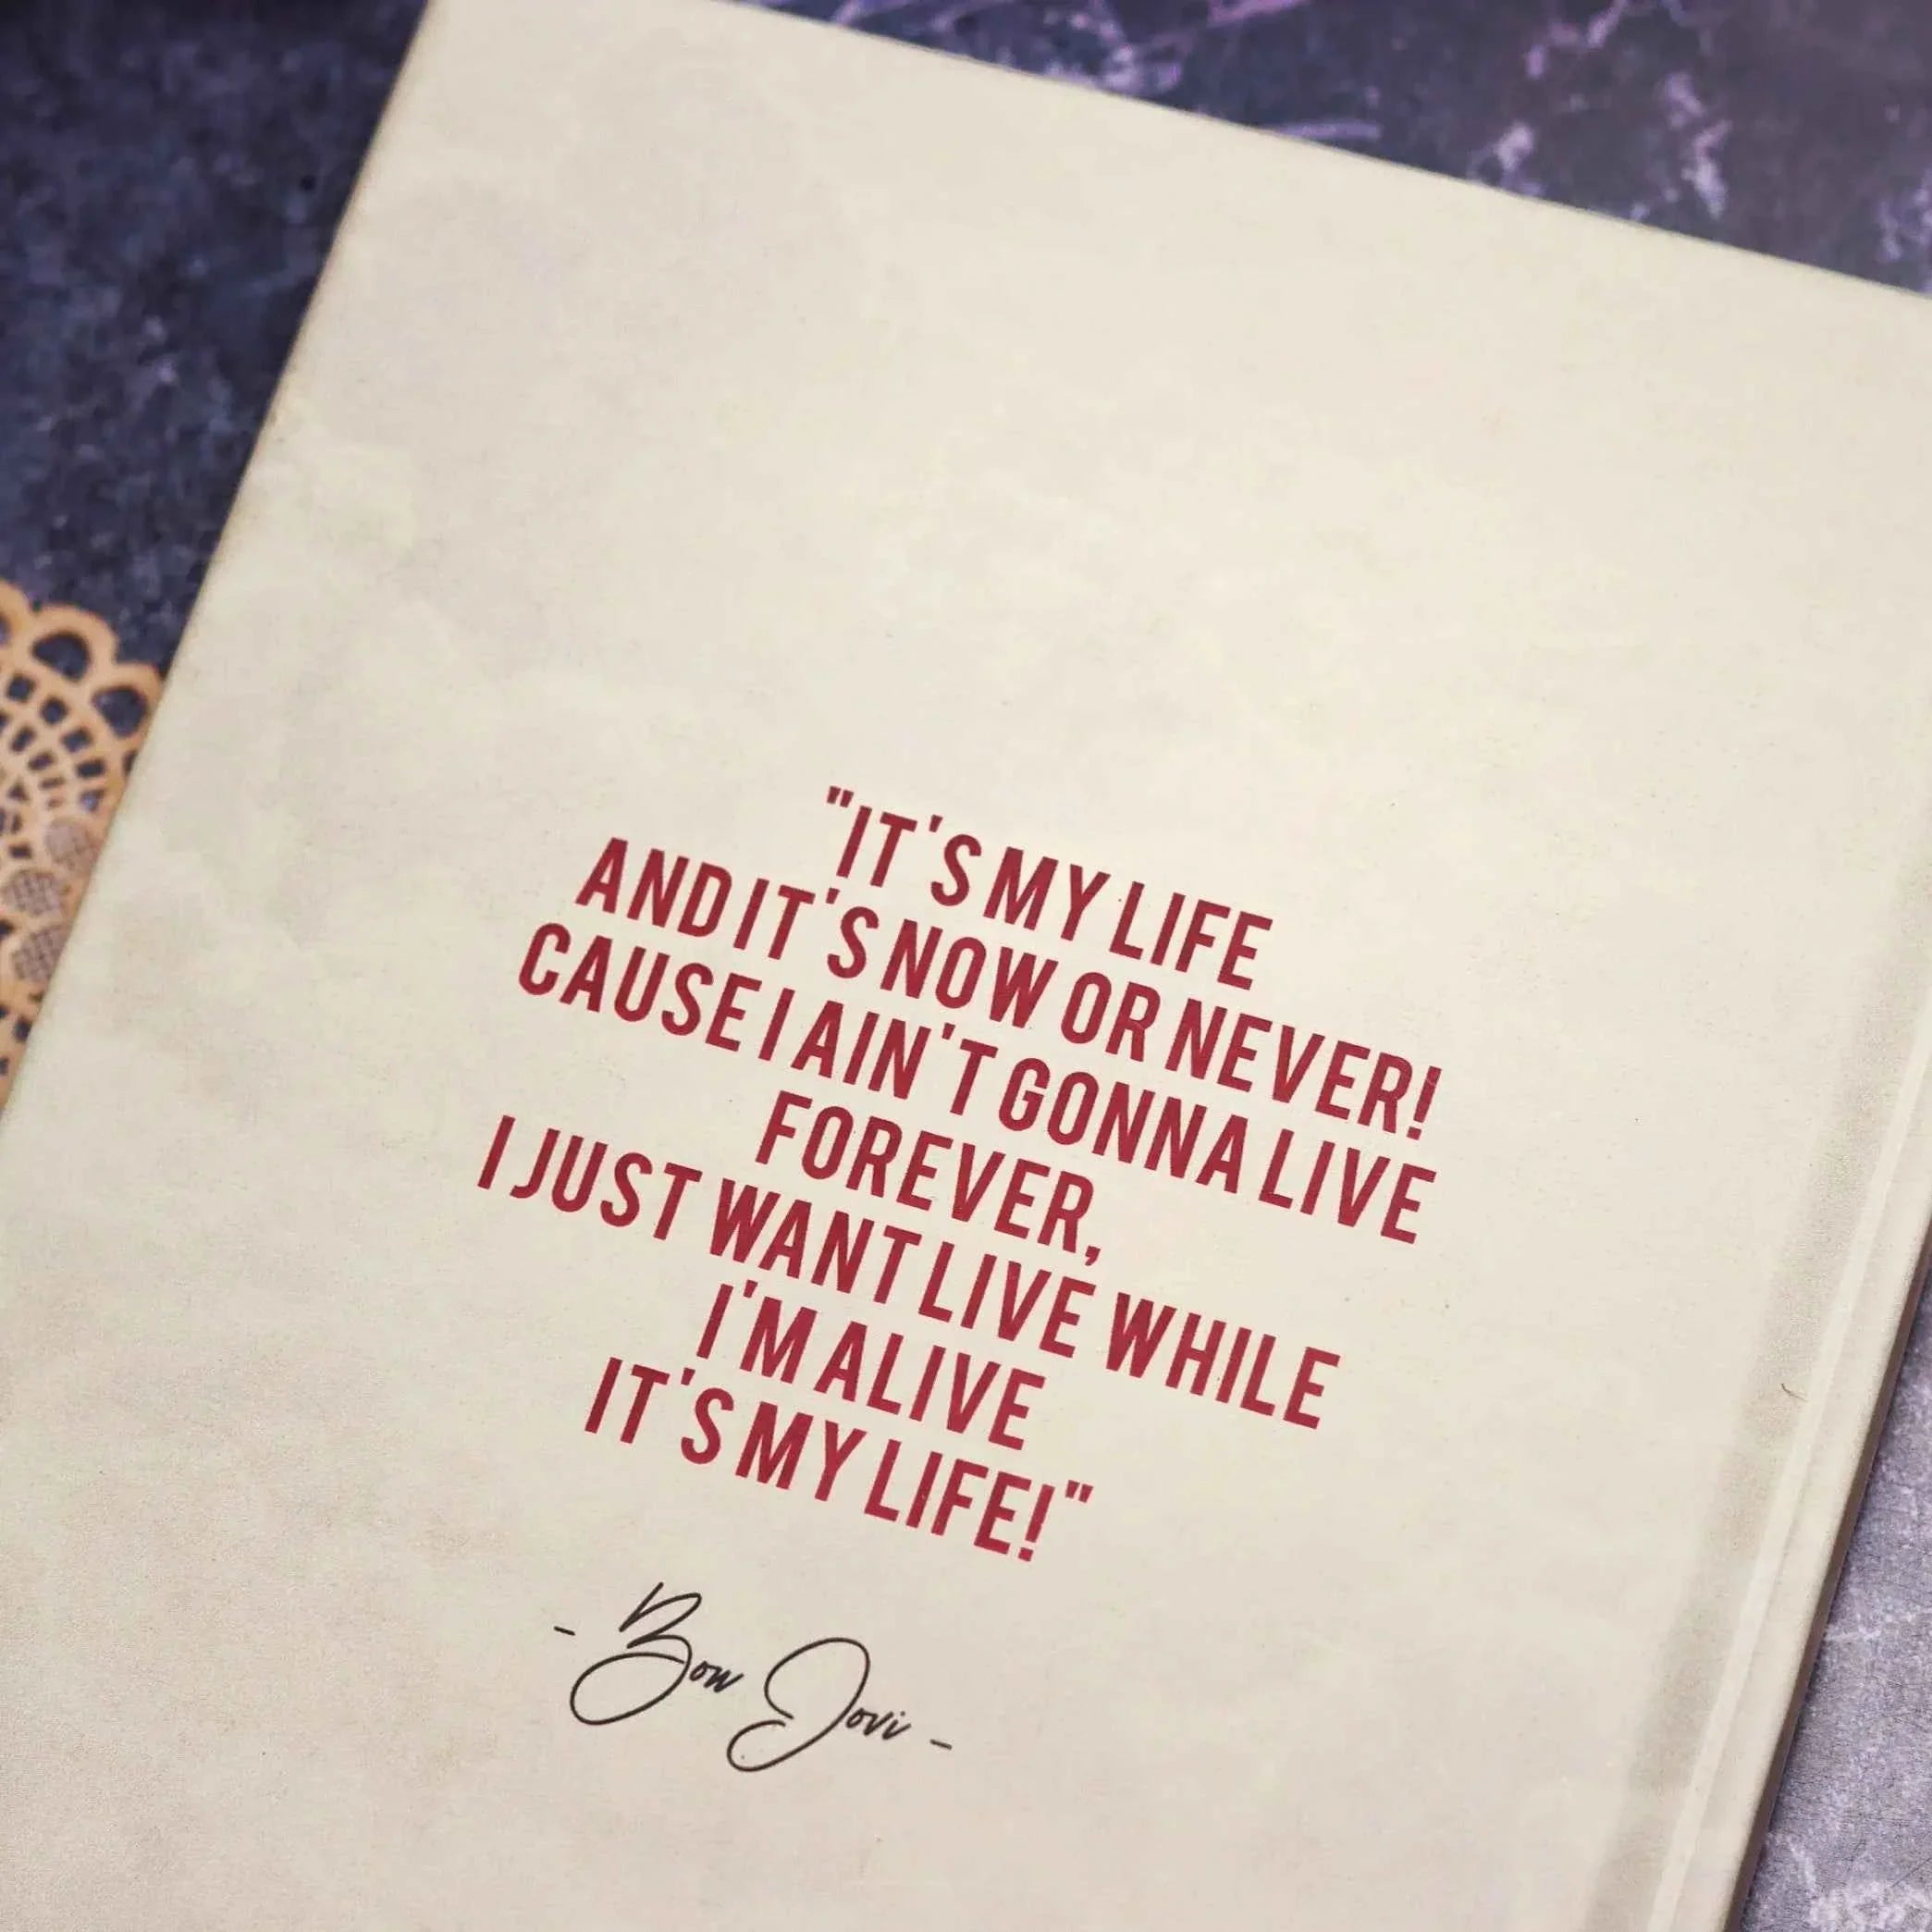 "IT'S MY LIFE
AND IT'S NOW OR NEVER!
CAUSE I AIN'T GONNA LIVE
FOREVER,
I JUST WANT LIVE WHILE
I'M ALIVE
IT'S MY LIFE!"
- Bon Jovi -